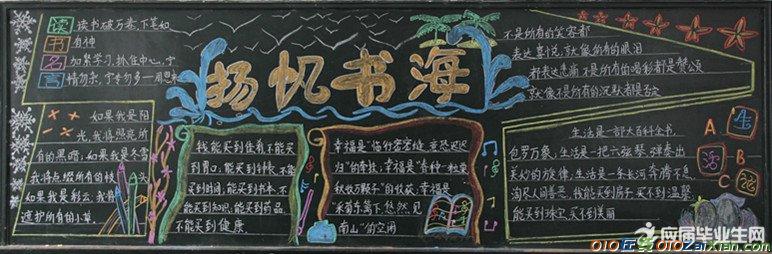 读书名言
读书破万卷,下笔如
有神
加紧学习,抓住中心,宁
精勿杂,宁专勿多—周恩来
扬帆书海
不是所有的笑容都
表达喜悦,就像所有的眼泪
都表达悲痛不是所有的喝彩都是赞颂
就像不是所有的沉默都是否定
如果我是阳
光,我将照亮所
有的黑暗,如果我是
如果我是彩云,我将
遮护所有的小草
我能买到住看不能买
到胃口,能买到钟表,不能
买到时间,能买到书本,不
能买到知识,能买到药品,
不能买到健康
幸福是“临行密密缝,意恐迟迟
归”的牵挂;幸福是“春种一粒粟,
秋收万颗子”的收获,幸福是
采菊东篱下,悠然见
南山”的空闲
生活是一部大百科全书,
包罗万象,生活是一把六弦琴,弹奏出
美妙的旋律,生活是一条长河奔腾不息,
淘尽人间善恶,我能买到房子,买不到温馨
能买到珠宝买不到美丽
A
B
C
应届毕业生网
010ZaiXian.Com